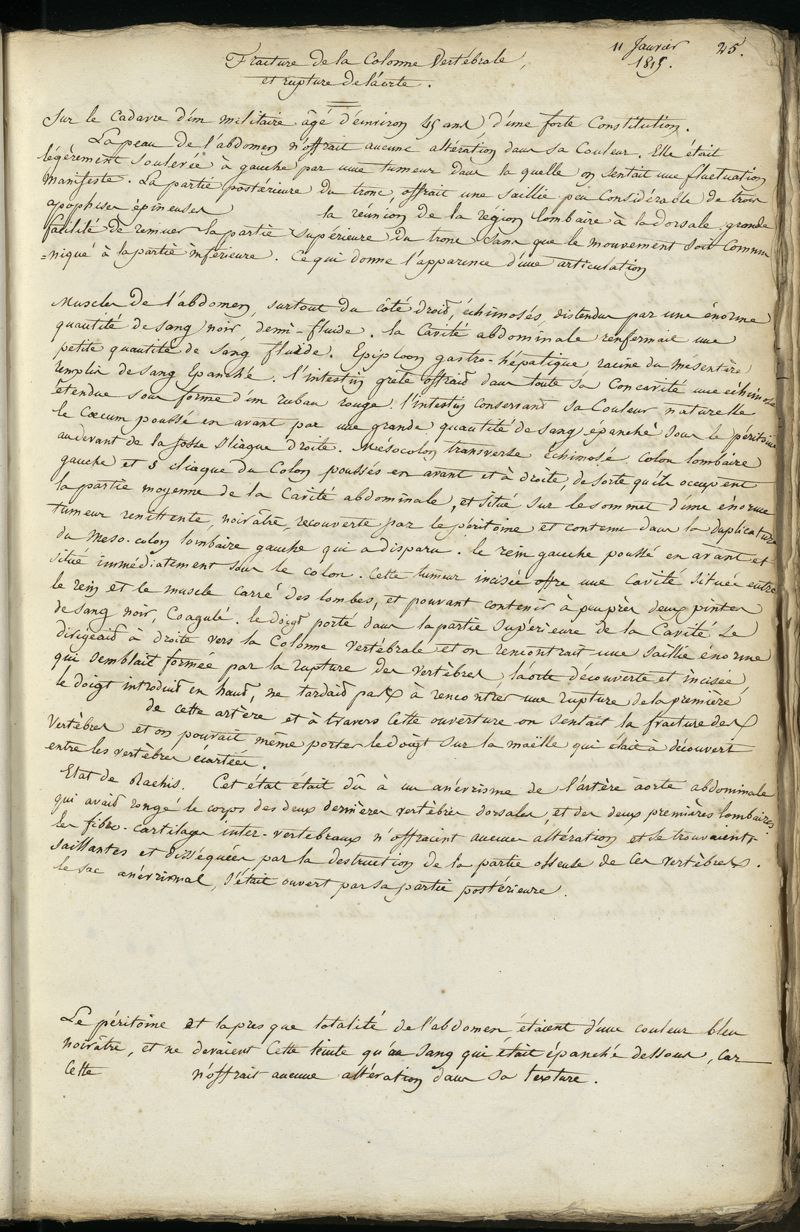 11 Janvier 25.
1815.
Fracture de la Colonne Vertébrale,
et rupture de láorte.
Sur le Cadavre d'un militaire âgé d'environ 45 ans d'une forte Constitution.
La peau de l'abdomen n'offrait aucune altération dans sa Couleur. Elle était
légèrement Soulevée à gauche par une tumeur dans la quelle on Sentait une fluctuation
manifeste. La partie postérieure du tronc offrait une saillie peu Considérable de trois
apophises épineuses la réunion de la région lombaire à la dorsale, grande
facilité de remuer la partie Supérieure du tronc Sans que le mouvement Soit Commu
=niqué à la partie inférieure. Ce qui donne l'apparence d'une articulation
Muscles de l'abdomen, surtout du côté droit, échimosés, distendus par une énorme
quantité de sang noir, demi-fluide. la Cavité abdominale renfermait une
petite quantité de Sang fluide. Epiploon gastro-hépatique, racine du mésentère
remplis de sang Epanché. l'intestin grêle offrait dans toute sa Concavité une échimose
étendue sous forme d'un ruban rouge, l'intestin conservant sa Couleur naturelle
le Cœcum poussé en avant par une grande quantité de Sang épanché Sous le péritoine
audevant de la fosse Iliaque droite. Mésocolon transverse Echimosé, Colon lombaire
gauche et S iliaque du Colon poussés en avant et à droite, de sorte qu'ils occupent
la partie moyenne de la Cavité abdominale, et situé sur le sommet d'une énorme
tumeur renittente, noirâtre, recouverte par le péritoine et contenu dans la duplicature
du Meso-colon lombaire gauche qui a disparu. le rein gauche poussé en avant et
situé immédiatement sous le colon. Cette tumeur incisée offre une Cavité située entre
le rein et le muscle carré des lombes, et pouvant contenir à peu près deux pintes
de sang noir, Coagulé. le doigt porté dans la partie Supérieure de la Cavité se
dirigeait à droite vers la Colonne Vertébrale et on rencontrait une saillie énorme
qui semblait formée par la rupture des vertèbres, láorte découverte et incisée,
le doigt introduit en haut, ne tardait pas à rencontrer une rupture de la première
de cette artère et à travers Cette ouverture on sentait la fracture des
Vertèbres et on pouvait même porter le doigt sur la moëlle qui était à découvert
entre les vertèbres écartées.
Etat de Rachis. Cet état était dû à un anévrisme de l'artère aorte abdominale
qui avait rongé le corps des deux dernières vertèbres dorsales, et des deux premières lombaires
les fibro-cartilages inter-vertébraux n'offraient aucune altération et se trouvaient
saillantes et disséquées par la destruction de la partie osseuse de Ces vertèbres.
le sac anévrismal, s'était ouvert par sa partie postérieure.
Le péritoine et la presque totalité de l'abdomen étaient d'une couleur bleu
noirâtre, et ne devaient Cette teinte qu'au sang qui était épanché dessous, car
Cette n'offrait aucune altération dans sa texture.